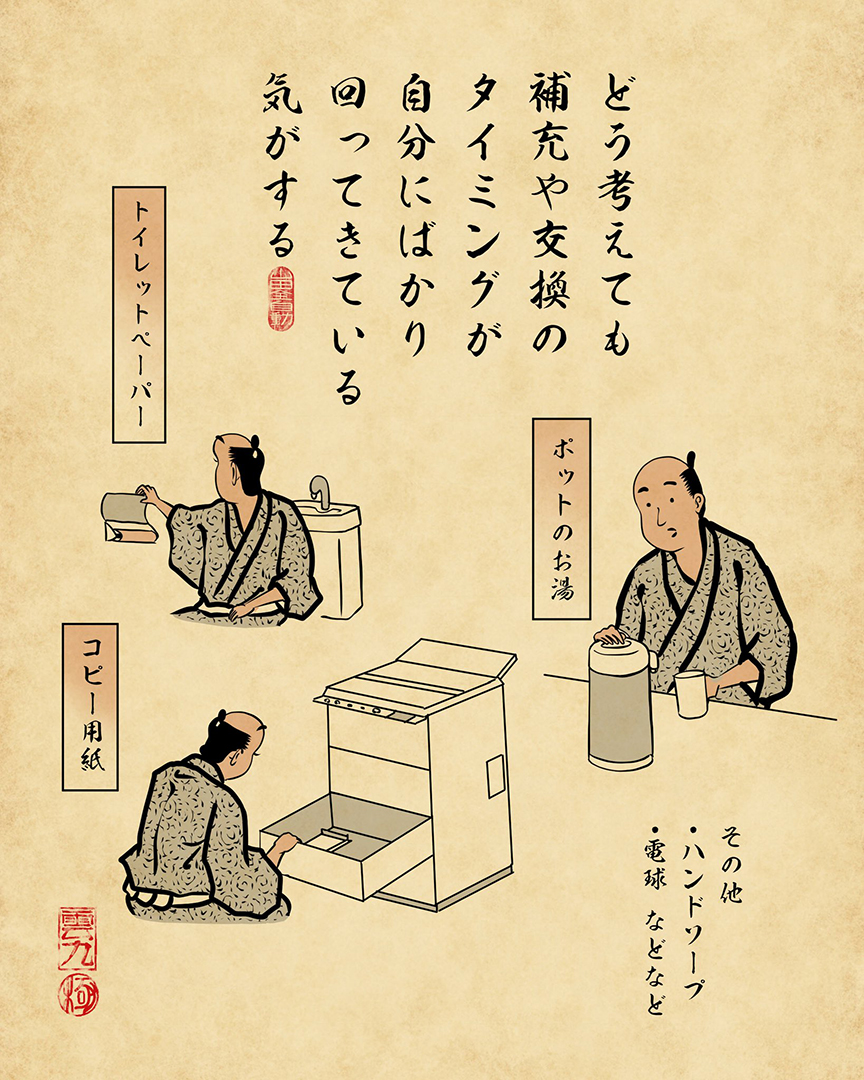 どう考えても
補充や交換の
タイミングが
自分にばかり
回ってきている
気がする
ポットのお湯
トイレットペーパー
コピー用紙
その他
・ハンドソープ
・電球 などなど